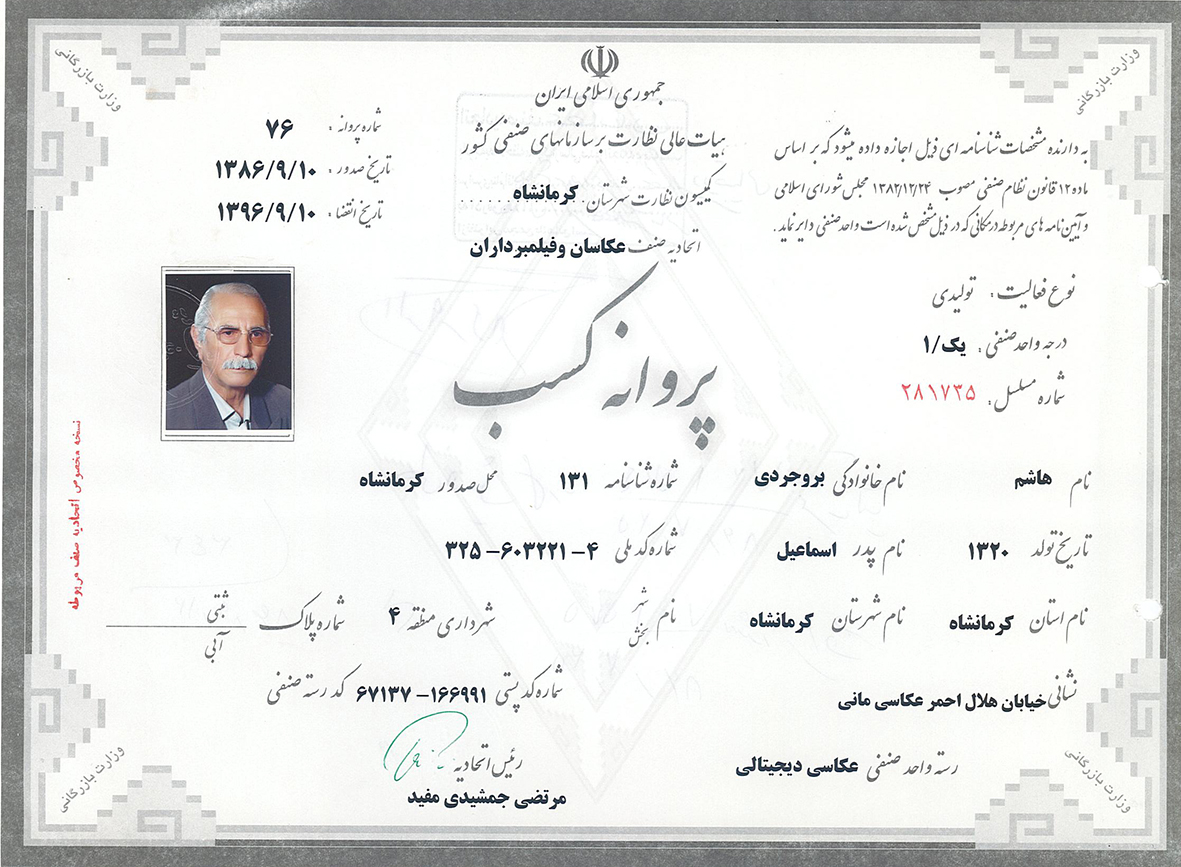 وزارت بازرگانی
وزارت بازرگانی
جمهوری اسلامی ایران
هیات عالی نظارت بر سازمانهای صنفی کشور
کمیسیون نظارت شهرستان: کرمانشاه ......
اتحادیه صنف عکاسان وفیلمبرداران
به دارنده مشخصات شناسنامه ای ذیل اجازه داده میشود که بر اساس
ماده ۱۲ قانون نظام صنفی مصوب ۱۳۸۲/۱۲/۲۴ مجلس شورای اسلامی
و آیین نامه های مربوطه در مکانی که در ذیل مشخص شده است واحد صنفی دایر نماید.
شماره پروانه : ۷۶
تاریخ صدور : ۱۳۸۶/۹/۱۰
تاریخ انقضاء : ۱۳۹۶/۹/۱۰
نوع فعالیت: تولیدی
درجه واحد صنفی: یک/۱
شماره مسلسل: ۲۸۱۷۳۵
پروانه کسب
نام هاشم نام خانوادگی بروجردی شماره شناسنامه ۱۳۱ محل صدور کرمانشاه
تاریخ تولد ۱۳۲۰ نام پدر اسماعیل شماره کد ملی ۴ -۶۰۳۲۲۱- ۳۲۵
نام استان کرمانشاه نام شهرستان کرمانشاه نام شهر بخش شهرداری منطقه ۴ شماره پلاک ثبتی آبی
نشانی خیابان هلال احمر عکاسی مانی شماره کد پستی ۱۶۶۹۹۱- ۶۷۱۳۷ کد رسته صنفی
رسته واحد صنفی عکاسی دیجیتالی رئیس اتحادیه
مرتضی جمشیدی مفید
نسخه مخصوص اتحادیه صنف مربوطه
وزارت بازرگانی
وزارت بازرگانی